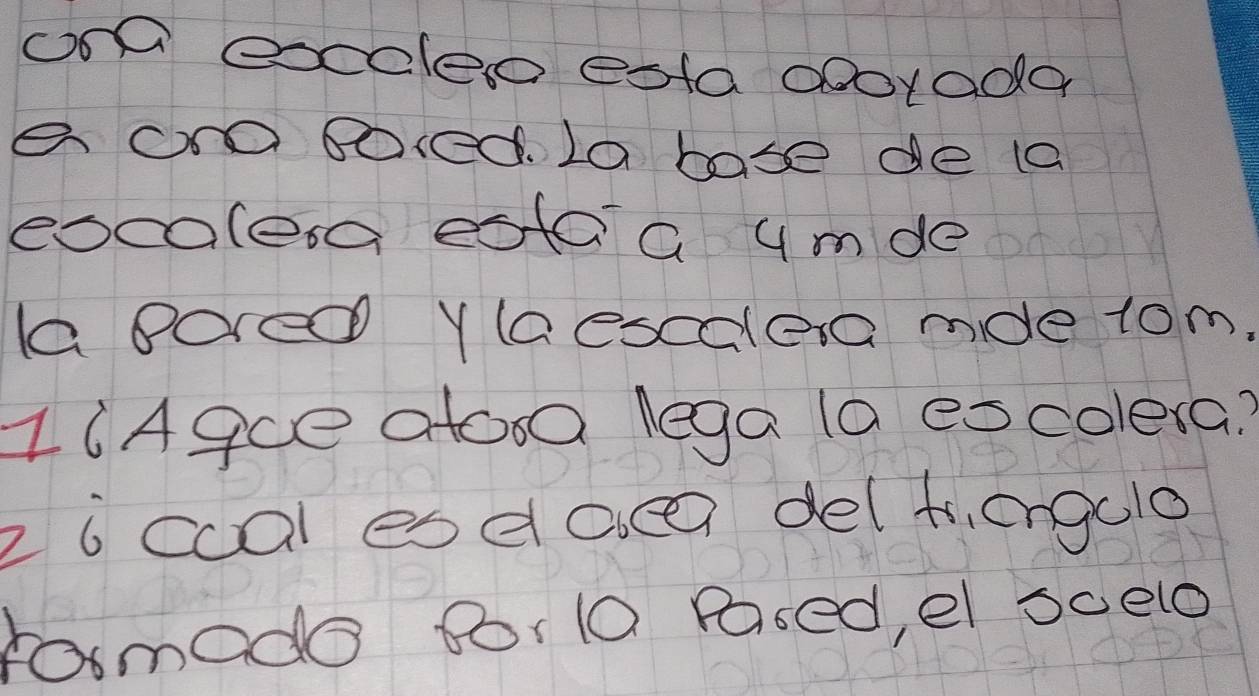 una escalera esta apoyada
en una pared. La base de la
escalera está a 4m de
la pared y la escalera mide 10m.
1 ¿A que altura llega la escalera?
2 ¿cual es el area del triangulo
formado por la pared, el suelo